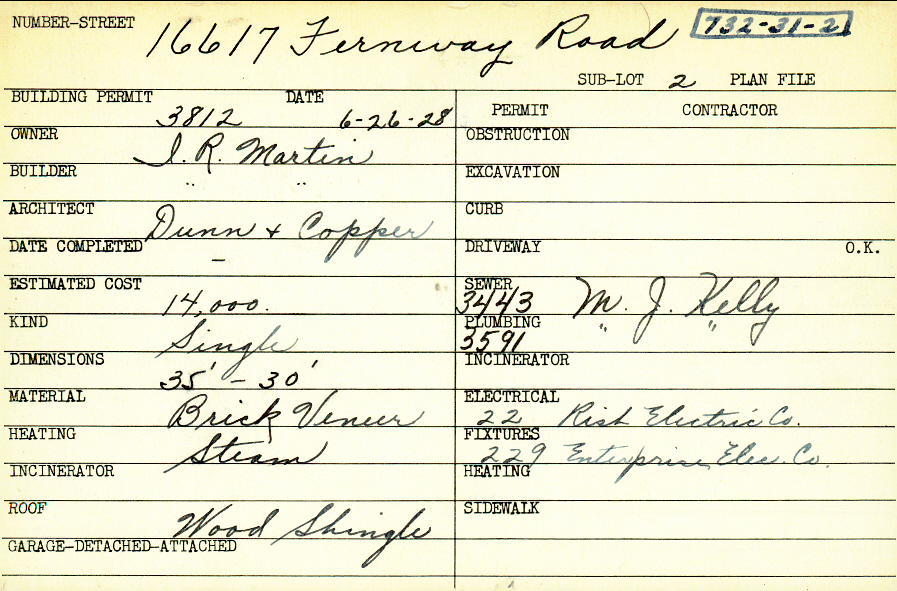 NUMBER-STREET 16617 Fernway Road 732-31-21
SUB-LOT 2 PLAN FILE
BUILDING PERMIT 3812 DATE 6-26-28
PERMIT CONTRACTOR
OWNER I. R. Martin
OBSTRUCTION
BUILDER " "
EXCAVATION
ARCHITECT Dunn + Copper
CURB
DATE COMPLETED -
DRIVEWAY O.K.
ESTIMATED COST 14,000.
SEWER 3443 M. J. Kelly
KIND Single
PLUMBING 3591 " "
DIMENSIONS 35' - 30'
INCINERATOR
MATERIAL Brick Veneer
ELECTRICAL 22 Rish Electric Co.
HEATING Steam
FIXTURES 229 Enterprise Elec. Co.
INCINERATOR
HEATING
ROOF Wood Shingle
SIDEWALK
GARAGE-DETACHED-ATTACHED